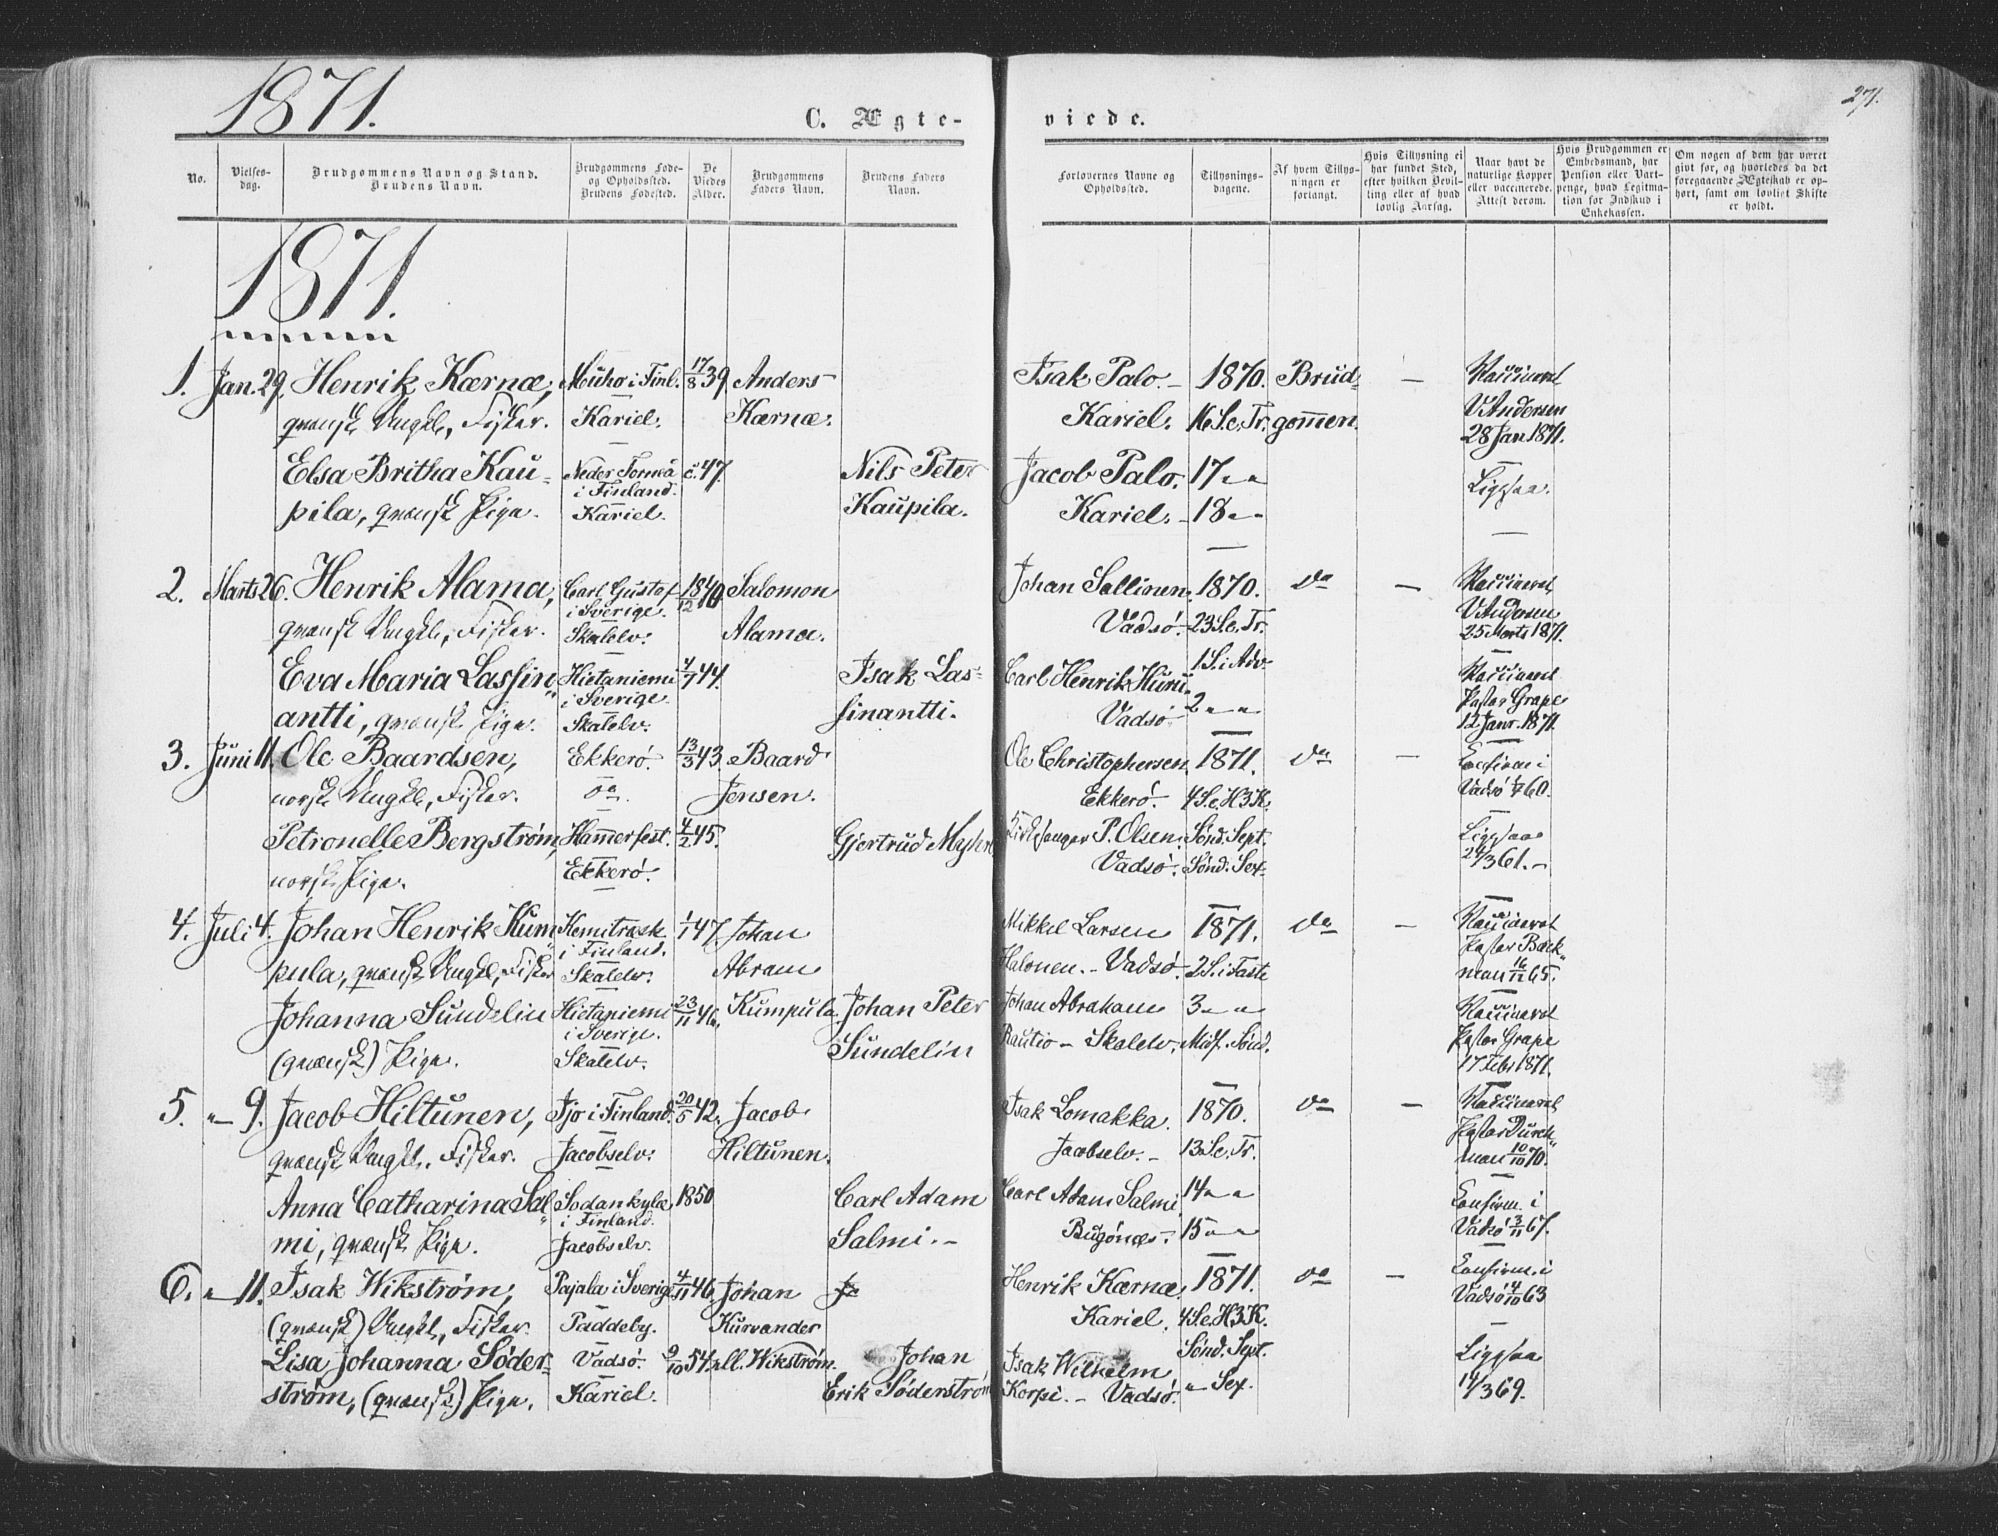 1871.
C. Ægte-
viede.
271.
No.
Vielses-
dag.
Brudgommens Navn og Stand.
Brudens Navn.
Brudgommens Føde-
og Opholdssted.
Brudens Fødested.
De
Viedes
Alder.
Brudgommens
Faders Navn.
Brudens Faders
Navn.
Forlovernes Navne og
Opholdssted.
Tillysnings-
dagene.
Af hvem Tillys-
ningen er
forlangt.
Hvis Tillysning ei
har fundet Sted,
efter hvilken Bevil-
ling eller af hvad
lovlig Aarsag.
Naar havt de
naturlige Kopper
eller vaccinerede.
Attest derom.
Hvis Brudgommen er
Embedsmand, har
Pension eller Vart-
penge, hvad Legitima-
tion for Indskud i
Enkekassen.
Om nogen af dem har været
gift før, og hvorledes da det
foregaaende Ægteskab er op-
hørt, samt om lovligt Skifte
er holdt.
1871.
1. Jan. 29. Henrik Kærnæ, Muho i Finl. 17/8 39. Anders Isak Palo. – 1870. Brud- – Vaccineret
qvænsk Ungkl., Fisker. Kariel. Kærnæ. Kariel. 16 S. e. Tr. gommen. V. Andersen
28 Jan 1871.
Elsa Britha Kau- Neder Torneå c. 47. Nils Peter Jacob Palo. 17 " "
i Finland. Ligesaa.
pila, qvænsk Pige. Kariel. Kaupila. Kariel. – 18 " "
2. Marts 26. Henrik Alama, Carl Gustof 18/12 40 Salomon Johan Sallinen. 1870. do – Vaccineret
i Sverige. V. Andersen
qvænsk Ungkl., Fisker. Skalelv. Alamæ. Vadsø. 23 S. e. Tr. 25 Marts 1871.
Eva Maria Lassin Hietaniemi 4/7 44. Isak Las- Carl Henrik Huru 1 S. i Adv. Vaccineret
i Sverige. Pastor Grape
antti, qvænsk Pige. Skalelv. sinantti. Vadsø 2 " " 12 Janr. 1871.
3. Juni 11. Ole Baardsen, Ekkerø. 13/3 43. Baard Ole Christophersen 1871. do – Confirm i
norsk Ungkl., Fisker. do. Jensen. Ekkerø. 4 S. e. H3K. Vadsø 60.
Petronelle Bergstrøm, Hammerfest. 4/2 45. Gjertrud Myhre Kirkesanger P. Olsen. Sønd. Sept. Ligesaa
norsk Pige. Ekkerø. Vadsø. Sønd. Sex. 24/3 61. –
4. Juli 4. Johan Henrik Kum Kemitræsk 1/1 47. Johan Mikkel Larsen 1871. do – Vaccineret
i Finland. Pastor Back-
pula, qvænsk Ungkl., Fisker Skalelv. Abram Halonen. – Vadsø. 2 S. i Faste man 16/11 65.
Johanna Sundelin Hietaniemi 23/11 46. Kumpula. Johan Peter Johan Abraham 3 " " Vaccineret
i Sverige. Pastor Grape
(qvænsk) Pige. Skalelv. Sundelin Rautio – Skalelv. Midf. Sønd. 17 Feb 1871.
5. " 9. Jacob Hiltunen, Ijo i Finland. 20/5 42. Jacob Isak Lomakka. 1870. do – Vaccineret
Pastor Durch-
qvænsk Ungkl. Fisker. Jacobselv. Hiltunen. Jacobselv. – 13 S. e. Tr. man 10/10 70.
Anna Catharina Sal Sodankylæ 1850 Carl Adam Carl Adam Salmi 14 " " Confirm. i
i Finland.
mi, qvænsk Pige. Jacobselv. Salmi. – Bugønæs. – 15 " " Vadsø 3/11 67.
6. " 11. Isak Wikstrøm, Pajala i Sverige 4/11 46. Johan Henrik Kærnæ. 1871. do – Confirm. i
Vadsø 4/10 63
(qvænsk) Ungkl., Fisker. Paddeby. Kurvander Kariel. 4 S. e. H3K.
Lisa Johanna Søder- Vadsø. 9/10 54. ell. Wikstrøm. Johan Isak Wilhelm Sønd. Sept. Ligesaa
strøm, (qvænsk) Pige. Kariel. Erik Søderstrøm Korpi. – Vadsø. " Sex. 14/3 69.